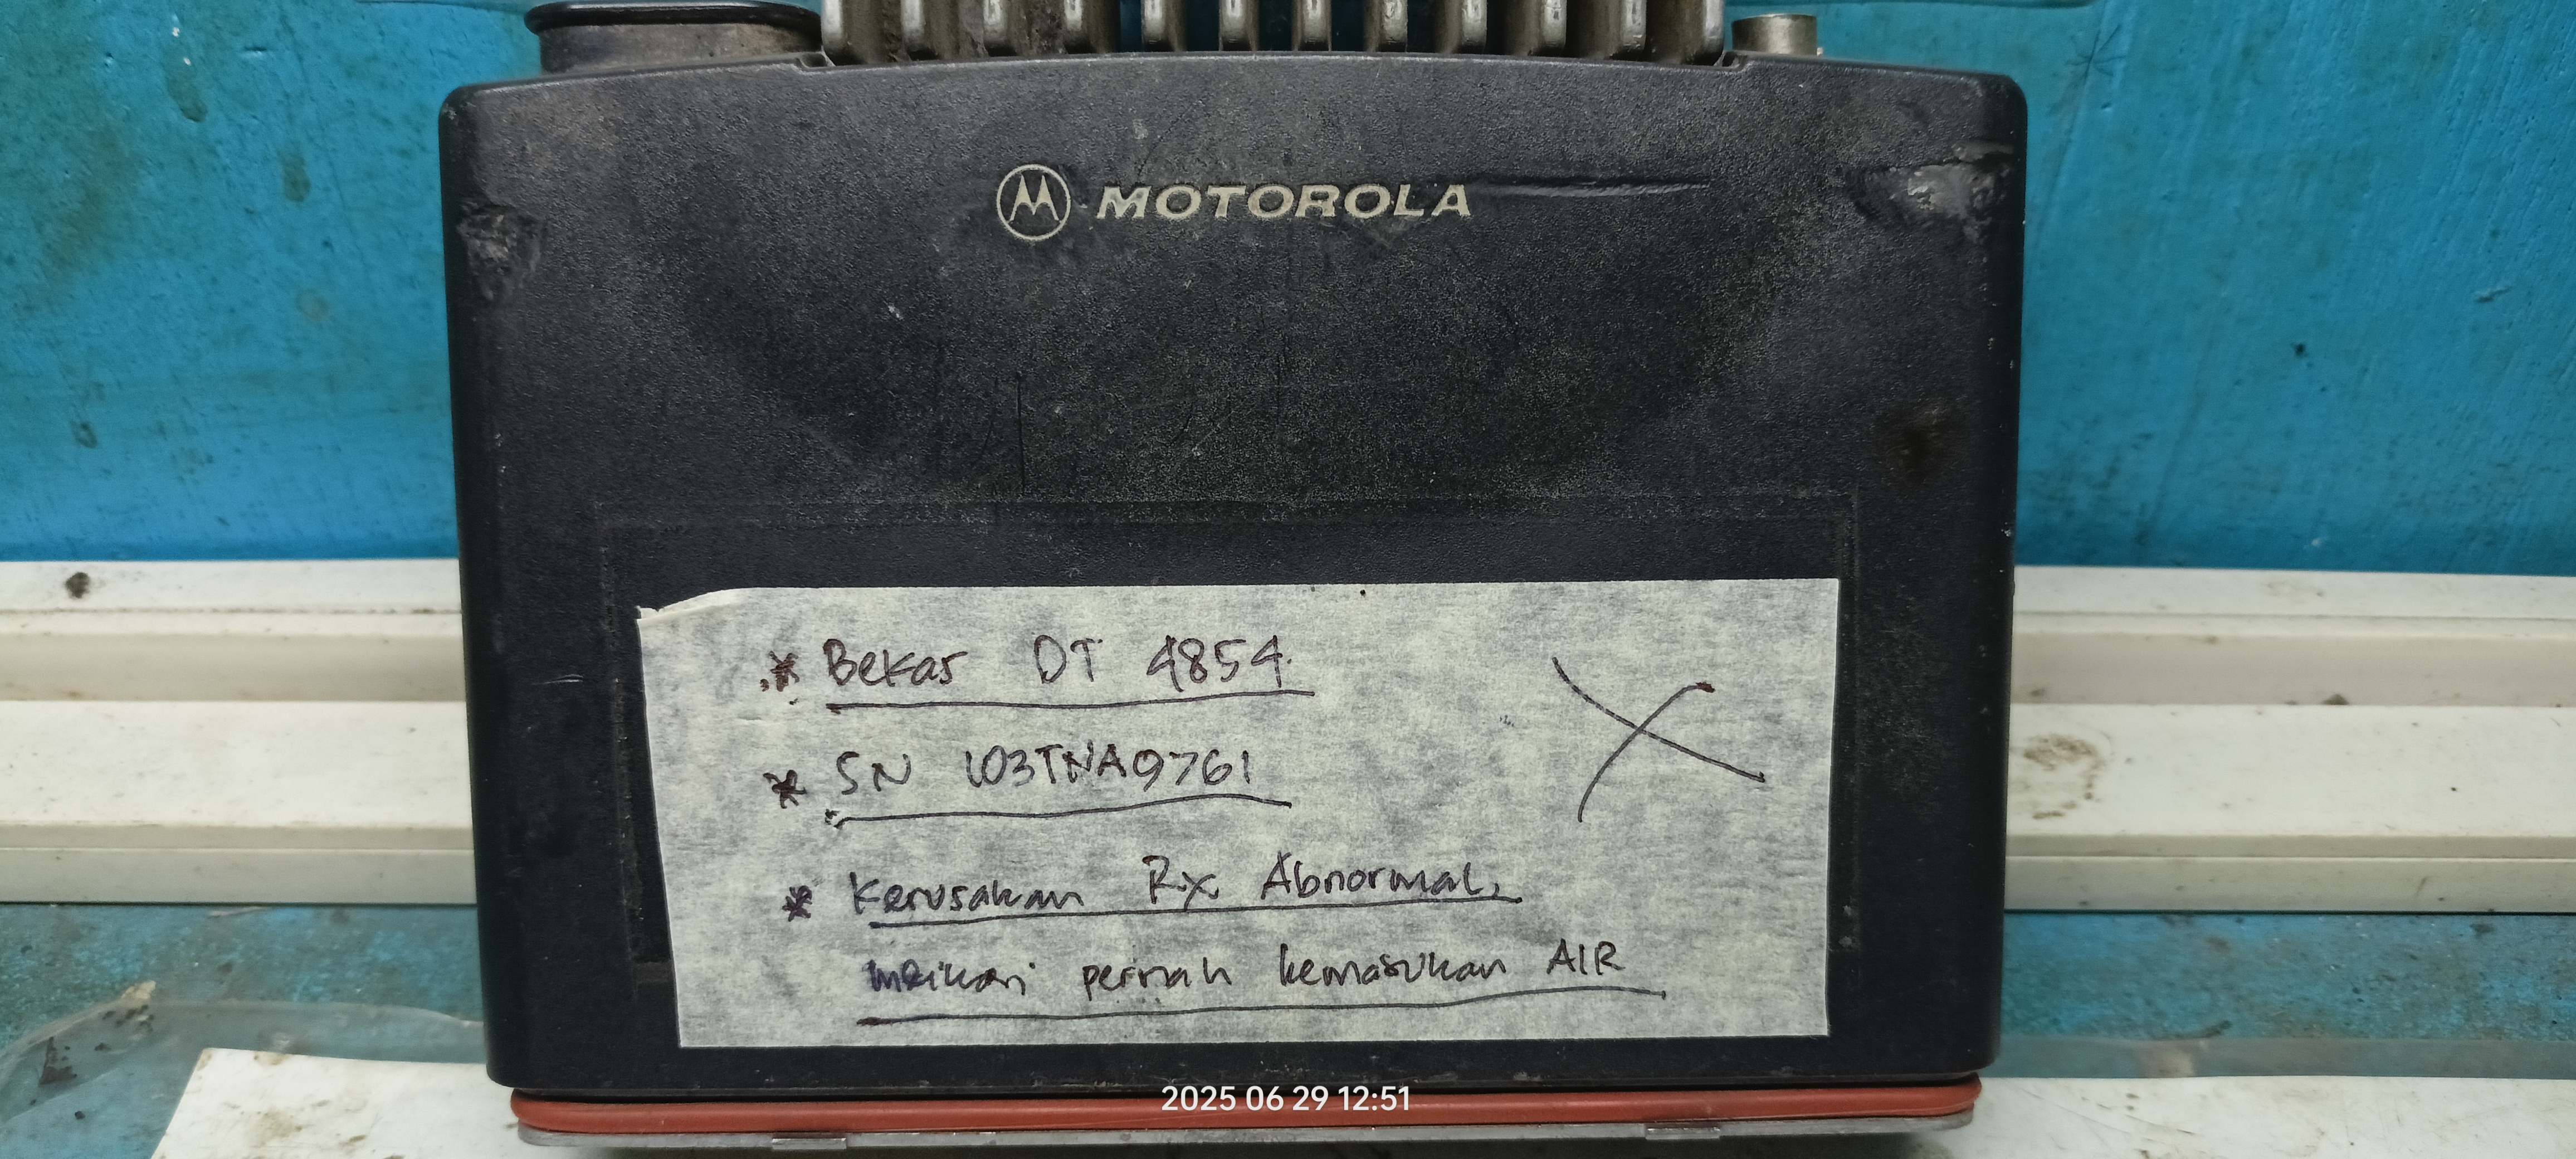 MOTOROLA
* Bekas DT 4854.
* SN 103TNA9761
X
* Kerusakan Rx Abnormal,
pernah kemasukan AIR
2025 06 29 12:51